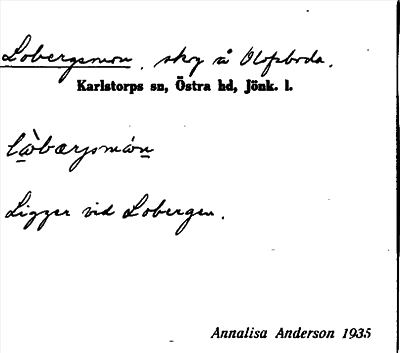 Lobergsmon, skog å Olofsboda.
Karlstorps sn, Östra hd, Jönk. l.
Ligger vid Lobergen.
Annalisa Anderson 1935